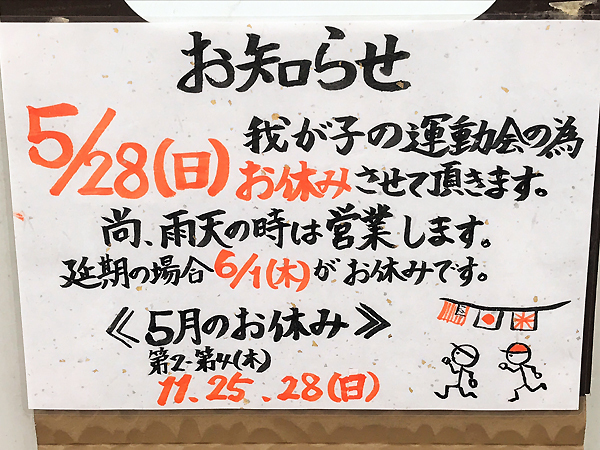 お知らせ
5/28(日) 我が子の運動会の為
お休みさせて頂きます。
尚、雨天の時は営業します。
延期の場合 6/1(木)がお休みです。
《5月のお休み》
第2・第4(木)
11、25、28(日)